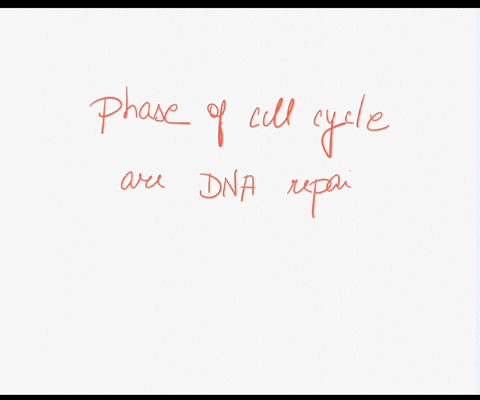 Phase of cell cycle
are DNA repai